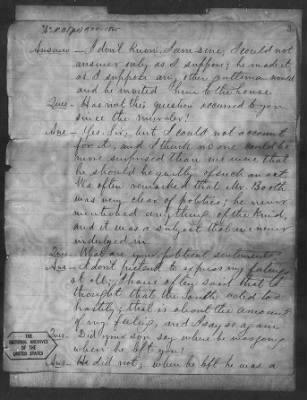 Answer — I don't know, I am sure, I could not
answer only as I suppose; he made it
as I suppose any other gentleman would
and he invited him to the house.
Ques — Has not this question occurred to you
since the murder?
Ans — Yes Sir, but I could not account
for it, and I think no one could be
more surprised than we were that
he should be guilty of such an act.
We often remarked that Mr. Booth
was very clear of politics; he never
mentioned anything of the kind,
and it was a subject that we never
indulged in.
Ques. What are your political sentiments?
Ans — I don't pretend to express my feelings
at all; I have often said that I
thought that the South acted too
hastily; that is about the amount
of my feeling, and I say so again
Ques. Did your son say where he was going
when he left you?
Ans. He did not; when he left he was a
THE
NATIONAL ARCHIVES
OF THE
UNITED STATES